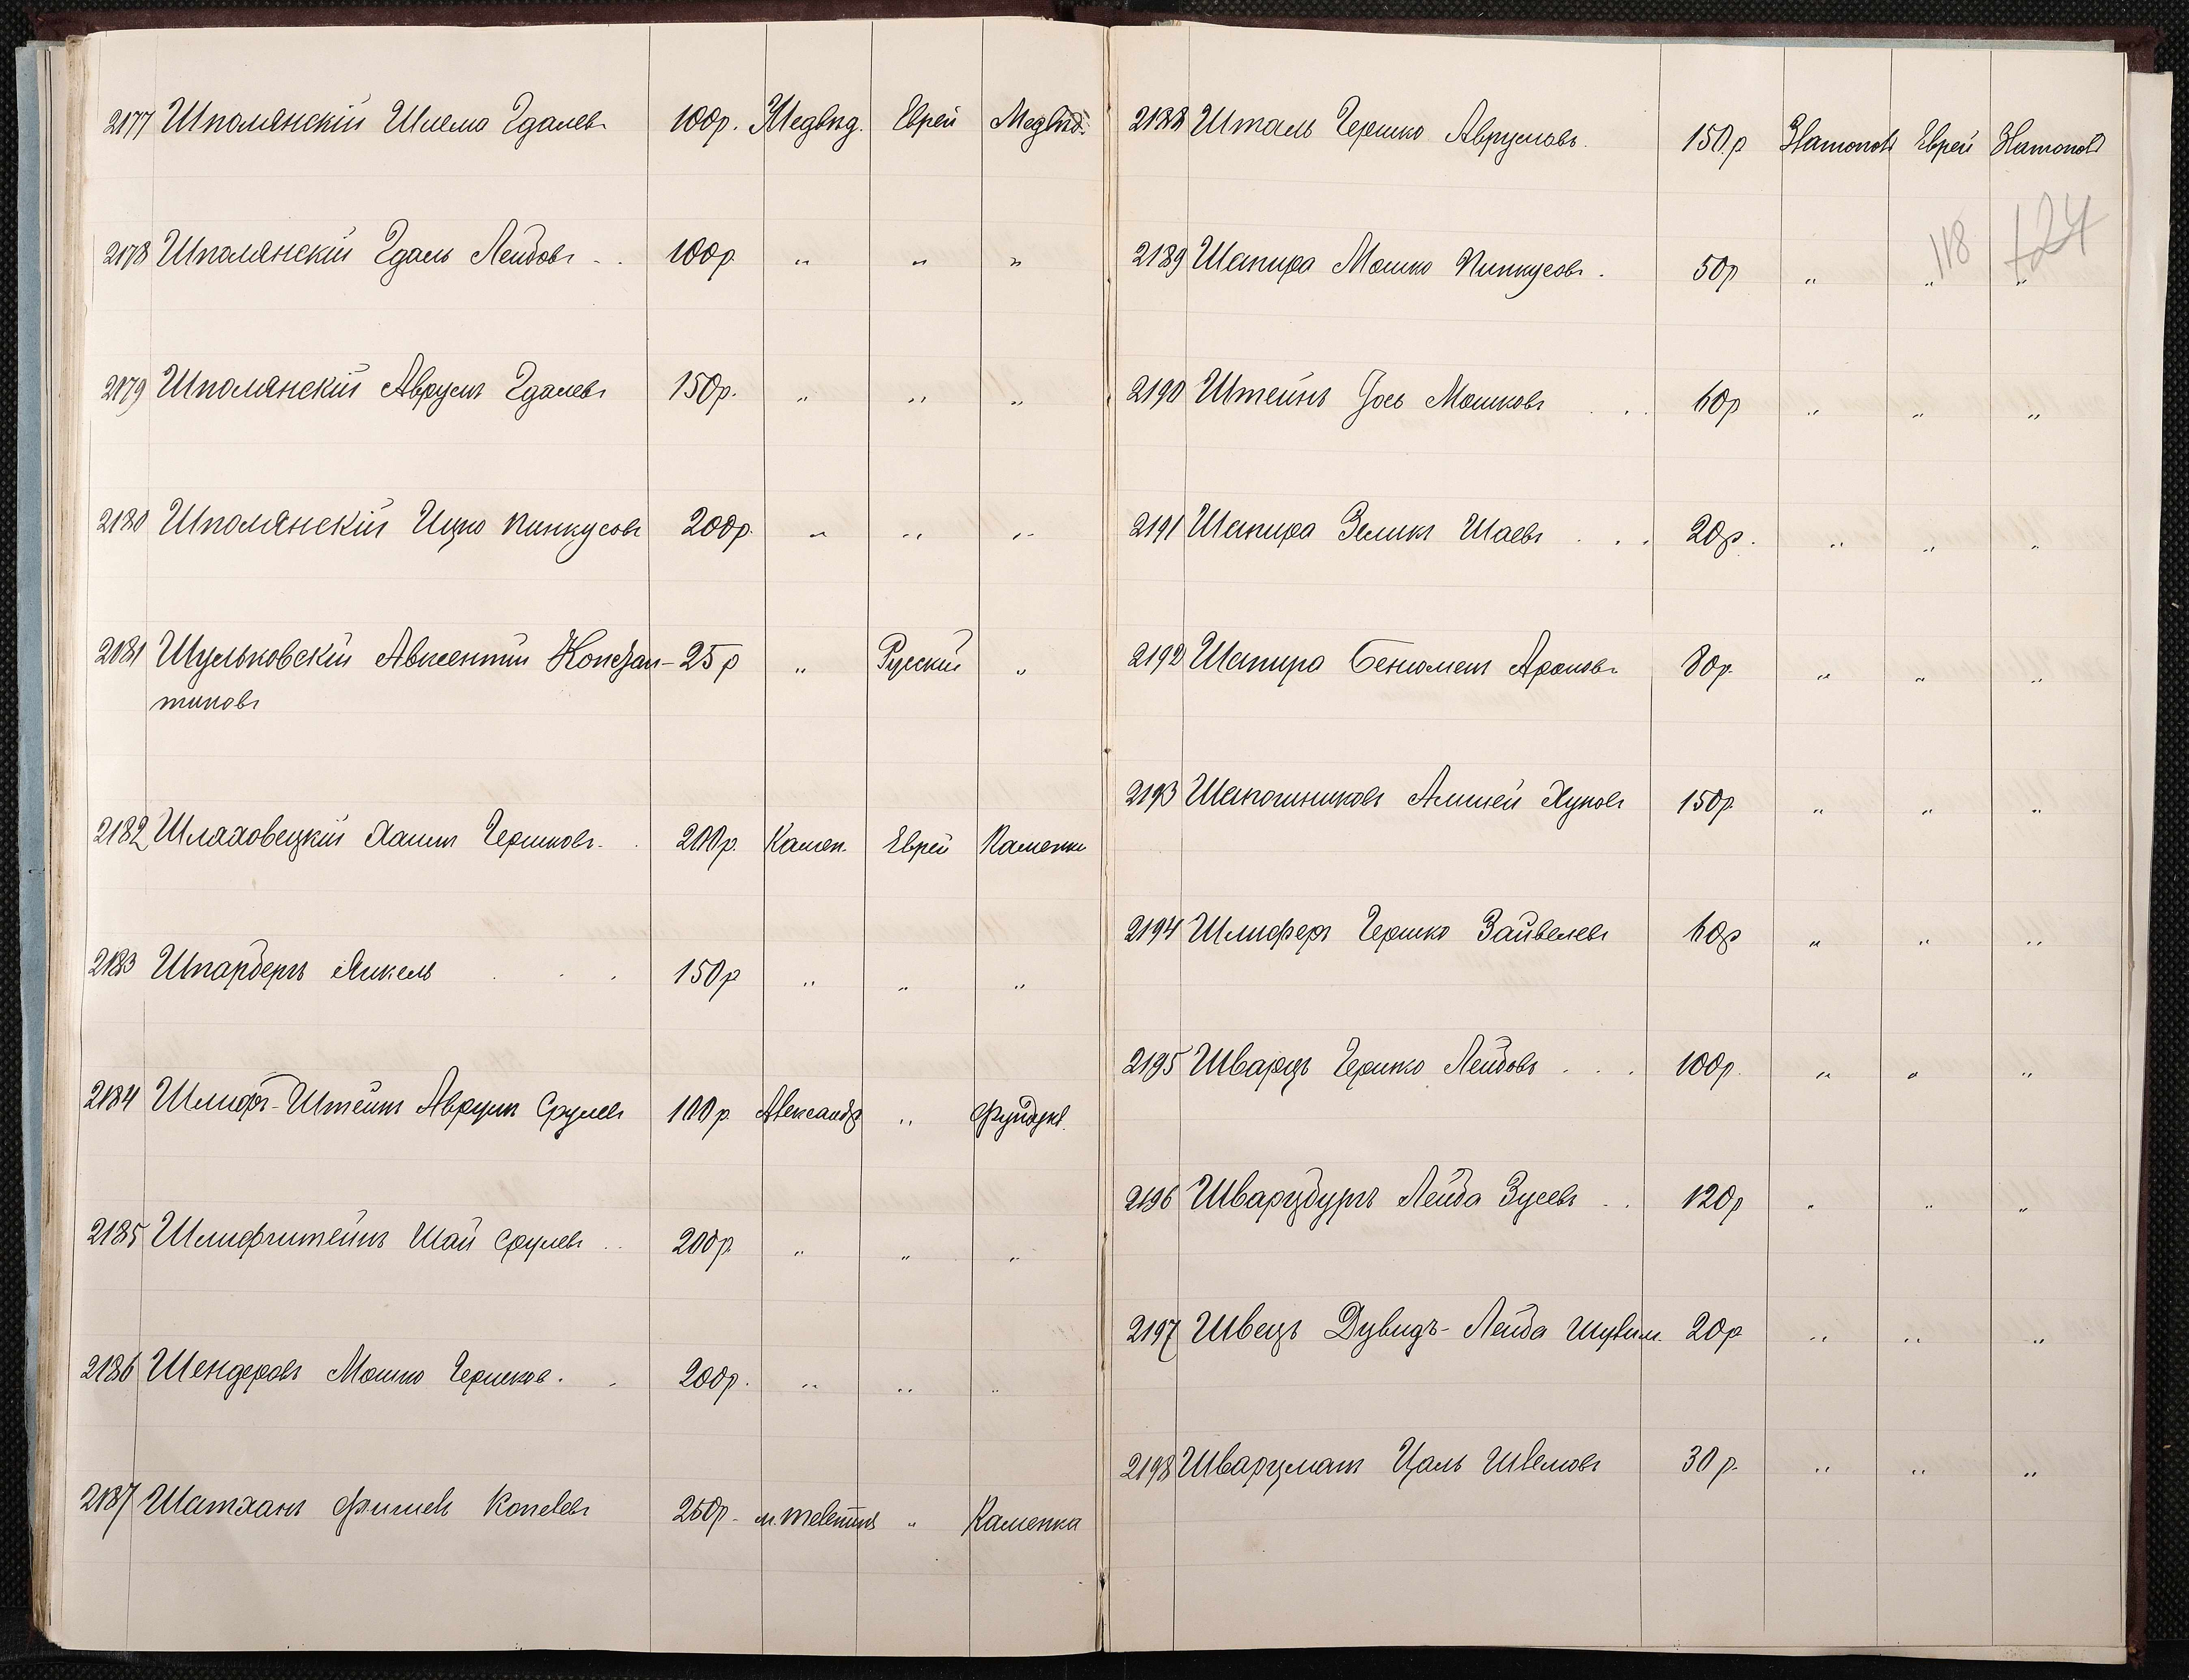 2177 Шполянскій Шлема Гдалев 100р. Медвѣд. Еврей Медвѣд.
2178 Шполянскій Гдаль Лейбовъ - . 100р. " " "
2179 Шполянскій Аврумъ Гдалевъ 150р. " " "
2180 Шполянскій Ицко Пинкусовъ 200р. " " "
2181 Шульковскій Авксентій Констан- 25р " Русскій "
тиновъ
2182 Шляховецкій Хаимъ Гершковъ. 200р. Камен. Еврей Каменки
2183 Шпарбергъ Янкель . . . 150р " " "
2184 Шлифъ-Штейнъ Аврумъ Срулевъ 100р. Александр " Фундукл.
2185 Шлифштейнъ Шай Срулевъ .. 200р. " " "
2186 Шендеровъ Мошко Гершков. . 200р. " " "
2187 Шатханъ Фишель Копелевъ 250р. м. Телепинъ " Каменка
2188 Шталь Гершко Аврумовъ. 150.р Златопол Еврей Златопол
118 124
2189 Шапира Мошко Пинкусовъ . 50р " " "
2190 Штейнъ Іось Мошковъ . . . 60р " " "
2191 Шапира Зеликъ Шаевъ . . . 20р. " " "
2192 Шапиро Беньоменъ Ароновъ 80р. " " "
2193 Шапочниковъ Хуновъ 150р. " " "
2194 Шлиферъ Гершко Зайвелевъ 60р " " "
2195 Шварцъ Гершко Лейбовъ . . . 100р. " " "
2196 Шварцбургъ Лейба Зусевъ . . 120р " " "
2197 Швецъ Дувидъ-Лейба 20р " " "
2198 Шварцманъ Цаль Шлемовъ 30р. " " "